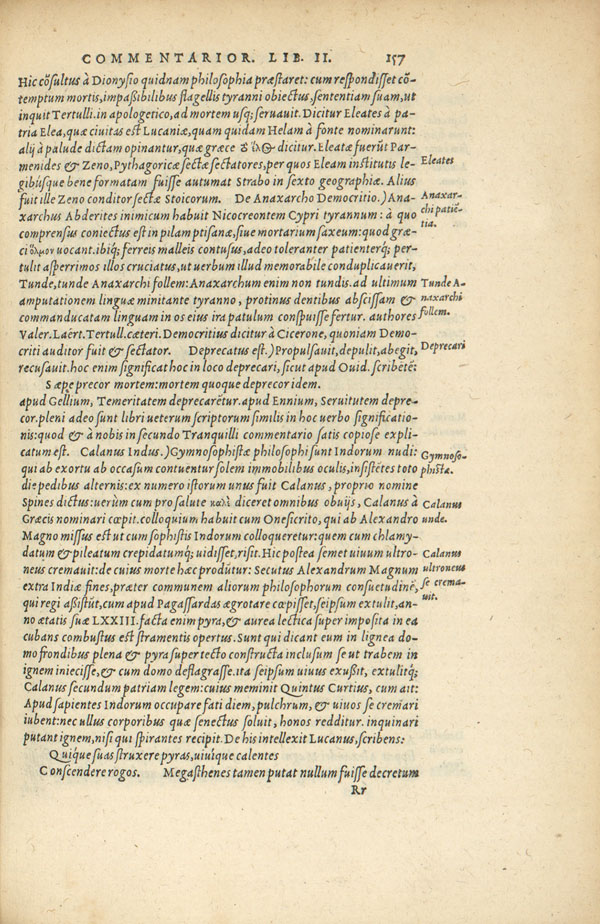 COMMENTARIOR. LIB. II. 157
Hic cōsultus à Dionysio quidnam philosophia præstaret: cum respondisset cō-
temptum mortis, impaßibilibus flagellis tyranni obiectus, sententiam suam, ut
inquit Tertulli. in apologetico, ad mortem usq; seruauit. Dicitur Eleates à pa-
tria Elea, quæ ciuitas est Lucaniæ, quam quidam Helam à fonte nominarunt:
alij à palude dictam opinantur, quæ græce dicitur. Eleatæ fuerūt Par-
menides & Zeno, Pythagoricæ sectæ sectatores, per quos Eleam institutis le-
Eleates
gibúsque bene formatam fuisse autumat Strabo in sexto geographiæ. Alius
fuit ille Zeno conditor sectæ Stoicorum. De Anaxarcho Democritio.) Ana-
Anaxar-
xarchus Abderites inimicum habuit Nicocreontem Cypri tyrannum: à quo
chi patiē-
comprensus coniectus est in pilam ptisanæ, siue mortarium saxeum: quod græ-
tia.
ci ὅλμον uocant. ibiq; ferreis malleis contusus, adeo toleranter patienterq; per-
tulit asperrimos illos cruciatus, ut uerbum illud memorabile conduplicauerit,
Tunde, tunde Anaxarchi follem: Anaxarchum enim non tundis. ad ultimum
Tunde A-
amputationem linguæ minitante tyranno, protinus dentibus abscissam &
naxarchi
commanducatam linguam in os eius ira patulum conspuisse fertur. authores
follem.
Valer. Laërt. Tertull. cæteri. Democritius dicitur à Cicerone, quoniam Demo-
criti auditor fuit & sectator. Deprecatus est.) Propulsauit, depulit, abegit,
Deprecari
recusauit. hoc enim significat hoc in loco deprecari, sicut apud Ouid. scribētē:
Sæpe precor mortem: mortem quoque deprecor idem.
apud Gellium, Temeritatem deprecarētur. apud Ennium, Seruitutem depre-
cor. pleni adeo sunt libri ueterum scriptorum similis in hoc uerbo significatio-
nis: quod & à nobis in secundo Tranquilli commentario satis copiose expli-
catum est. Calanus Indus.) Gymnosophistæ philosophi sunt Indorum nudi:
Gymnoso-
qui ab exortu ab occasum contuentur solem immobilibus oculis, insistētes toto
phistæ.
die pedibus alternis: ex numero istorum unus fuit Calanus, proprio nomine
Spines dictus: uerùm cum pro salute καλὲ diceret omnibus obuijs, Calanus à
Calanus
Græcis nominari cœpit. colloquium habuit cum Onesicrito, qui ab Alexandro
unde.
Magno missus est ut cum sophistis Indorum colloqueretur: quem cum chlamy-
datum & pileatum crepidatumq; uidisset, risit. Hic postea semet uiuum ultro-
Calanus
neus cremauit: de cuius morte hæc prodūtur: Secutus Alexandrum Magnum
ultroneus
extra Indiæ fines, præter communem aliorum philosophorum consuetudinē,
se crema-
qui regi aßistūt, cum apud Pagassardas ægrotare cœpisset, seipsum extulit, an-
uit.
no ætatis suæ LXXIII. facta enim pyra, & aurea lectica super imposita in ea
cubans combustus est stramentis opertus. Sunt qui dicant eum in lignea do-
mo frondibus plena & pyra super tecto constructa inclusum se ut trabem in
ignem iniecisse, & cum domo deflagrasse. ita seipsum uiuus exußit, extulitq;
Calanus secundum patriam legem: cuius meminit Quintus Curtius, cum ait:
Apud sapientes Indorum occupare fati diem, pulchrum, & uiuos se cremari
iubent: nec ullus corporibus quæ senectus soluit, honos redditur. inquinari
putant ignem, nisi qui spirantes recipit. De his intellexit Lucanus, scribens:
Quíque suas struxere pyras, uiuíque calentes
Conscendere rogos. Megasthenes tamen putat nullum fuisse decretum
Rr